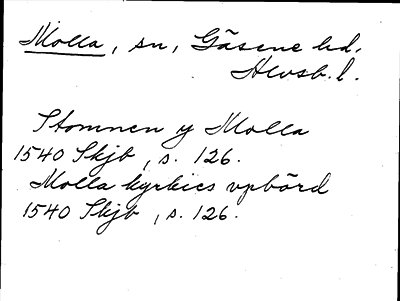 Molla, sn, Gäsene hd.
Älvsb. l.
Stomnen y Molla
1540 Skjb, s. 126.
Molla kyrkies vpbörd
1540 Skjb, s. 126.